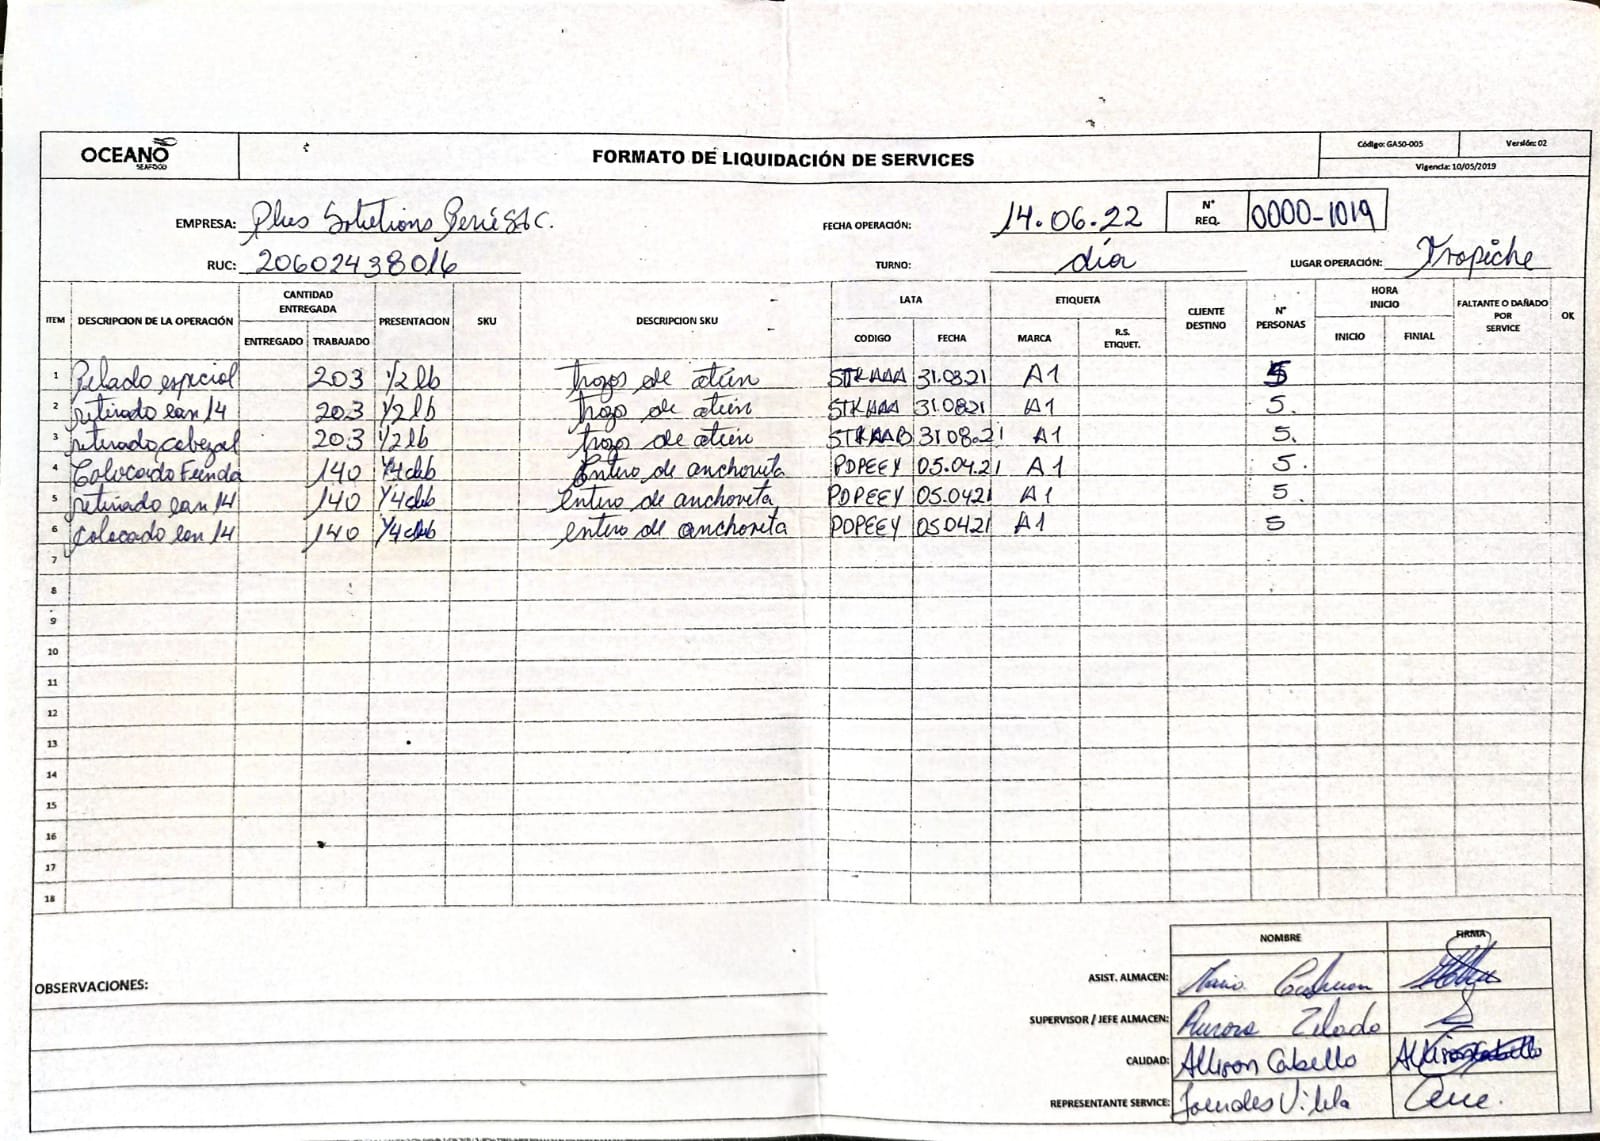 OCEANO
SEAFOOD
FORMATO DE LIQUIDACIÓN DE SERVICES
Código: GASO-005
Versión: 02
Vigencia: 10/05/2019
EMPRESA: Plus Solutions Perú SAC.
FECHA OPERACIÓN: 14.06.22
N° REQ. 0000-1019
RUC: 20602438016
TURNO: día
LUGAR OPERACIÓN: Tropiche
ITEM DESCRIPCION DE LA OPERACIÓN CANTIDAD ENTREGADA PRESENTACION SKU DESCRIPCION SKU LATA ETIQUETA CLIENTE DESTINO N° PERSONAS HORA INICIO FALTANTE O DAÑADO POR SERVICE OK
ENTREGADO TRABAJADO CODIGO FECHA MARCA R.S. ETIQUET. INICIO FINIAL
1 Pelado especial 203 1/2 lb trozos de atún 31.08.21 A1 5
2 retirado can 14 203 1/2 lb trozo de atún 31.0821 A1 5.
3 retirado Cabezal 203 1/2 lb trozo de atún STKAAB 31.08.21 A1 5.
4 Colocado Funda 140 1/4 club Entero de anchoveta PDPEEY 05.04.21 A1 5.
5 retirado can 14 140 1/4 club entero de anchoveta PDPEEY 05.0421 A1 5.
6 Colocado can 14 140 1/4 club entero de anchoveta PDPEEY 050421 A1 5
7
8
9
10
11
12
13
14
15
16
17
18
NOMBRE FIRMA
OBSERVACIONES:
ASIST. ALMACEN: Maria
SUPERVISOR / JEFE ALMACEN: Aurora Zelado
CALIDAD: Allison Cabello Allison Cabello
REPRESENTANTE SERVICE: Lourdes Vilela